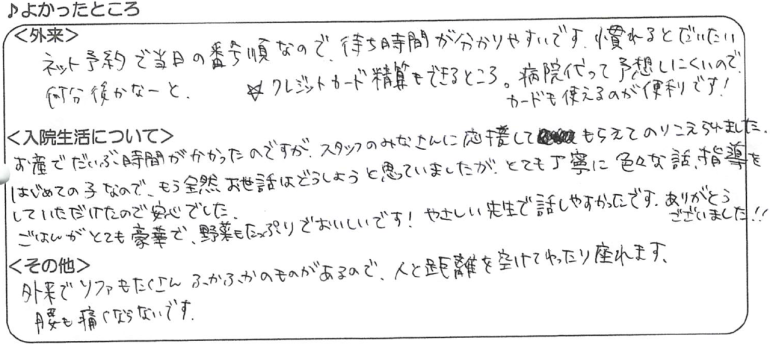 ♪よかったところ
<外来>
ネット予約で当日の番号順なので、待ち時間が分かりやすいです。慣れるとだいたい
何分後かなーと。 ☆クレジットカード精算もできるところ。病院代って予想しにくいので
カードも使えるのが便利です!
<入院生活について>
お産でだいぶ時間がかかったのですが、スタッフのみなさんに応援してもらえてのりこえられました。
はじめての子なので、もう全然お世話はどうしようと思っていましたが、とても丁寧に色々な話、指導を
していただけたので安心でした。
ごはんがとても豪華で、野菜もたっぷりでおいしいです! やさしい先生で話しやすかったです。ありがとう
ございました!!
<その他>
外来でソファもたくさんふかふかのものがあるので、人と距離を空けてゆったり座れます。
腰も痛くならないです。